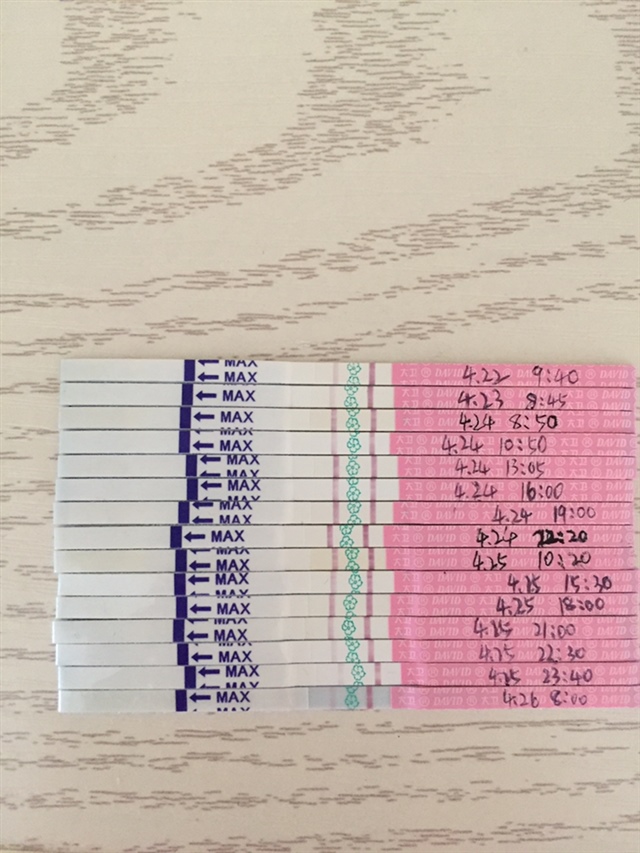 MAX
MAX 4.22 9:40
MAX 4.23 9:45
MAX 大卫 DAVID 4.24 8:50
MAX 4.24 10:50 大卫 DAVID
MAX 4.24 13:05
MAX 4.24 16:00
MAX 4.24 19:00
MAX 4.24 22:20
MAX 4.25 10:20
MAX 4.25 15:30
MAX 4.25 18:00
MAX 4.25 21:00
MAX 4.25 22:30
MAX 4.25 23:40
MAX 4.26 8:00